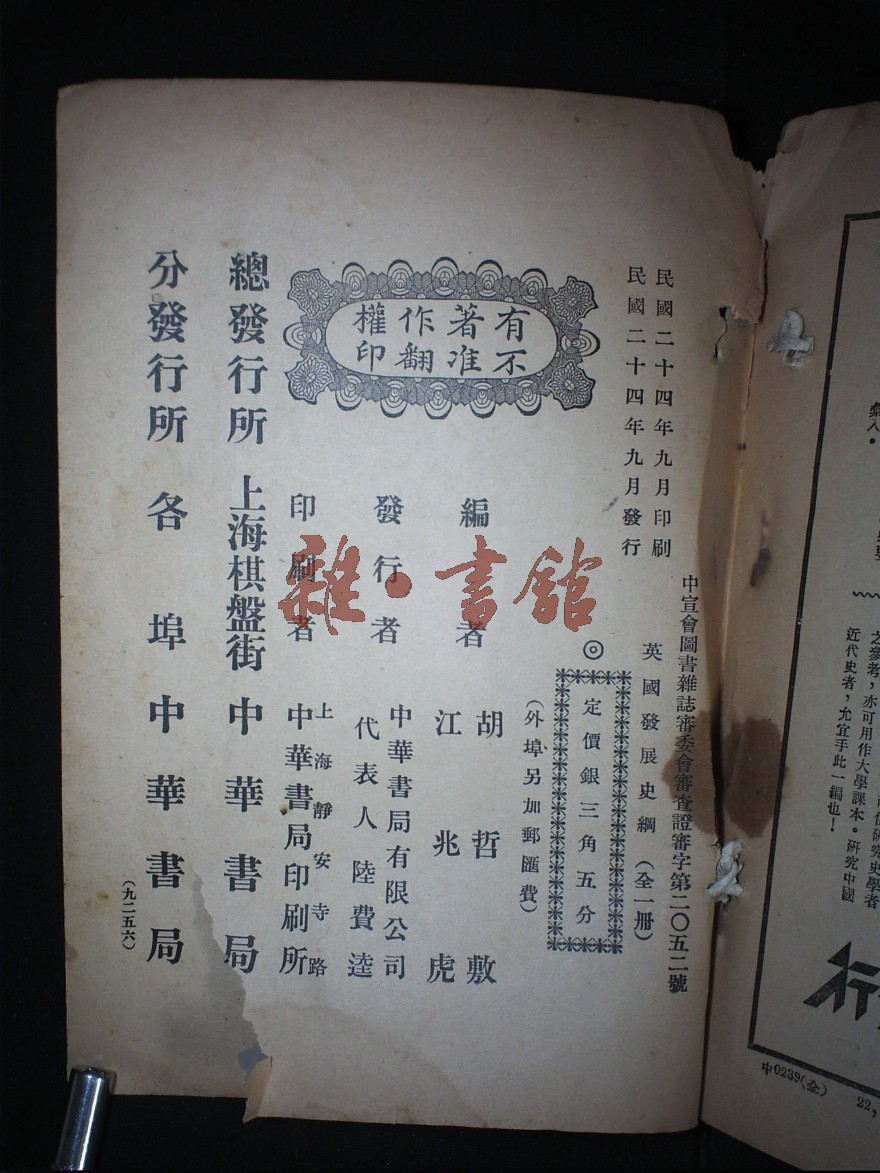 民國二十四年九月印刷
民國二十四年九月發行
中宣會圖書雜誌審委會審查證審字第二〇五二號
英國發展史綱（全一冊）
◎定價銀三角五分
（外埠另加郵匯費）
有著作權
不准翻印
編者
胡哲敷
江兆虎
發行者
中華書局有限公司
代表人陸費逵
印刷者
上海靜安寺路
中華書局印刷所
總發行所 上海棋盤街 中華書局
分發行所 各埠中華書局
（九二五六）
雅·書館
彙入。
之參考，亦可用作大學課本。研究中國
近代史者，允宜手此一編也！
行
中0239(全)
22,